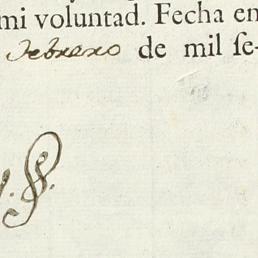 mi voluntad. Fecha en
Febrero de mil ſe-